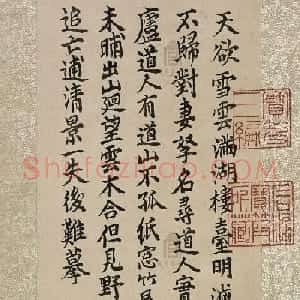 天欲雪雲滿湖樓臺明滅
不歸對妻孥名尋道人實
廬道人有道山不孤紙窓竹
未晡出山迴望雲木合但見野
追亡逋清景一失後難摹